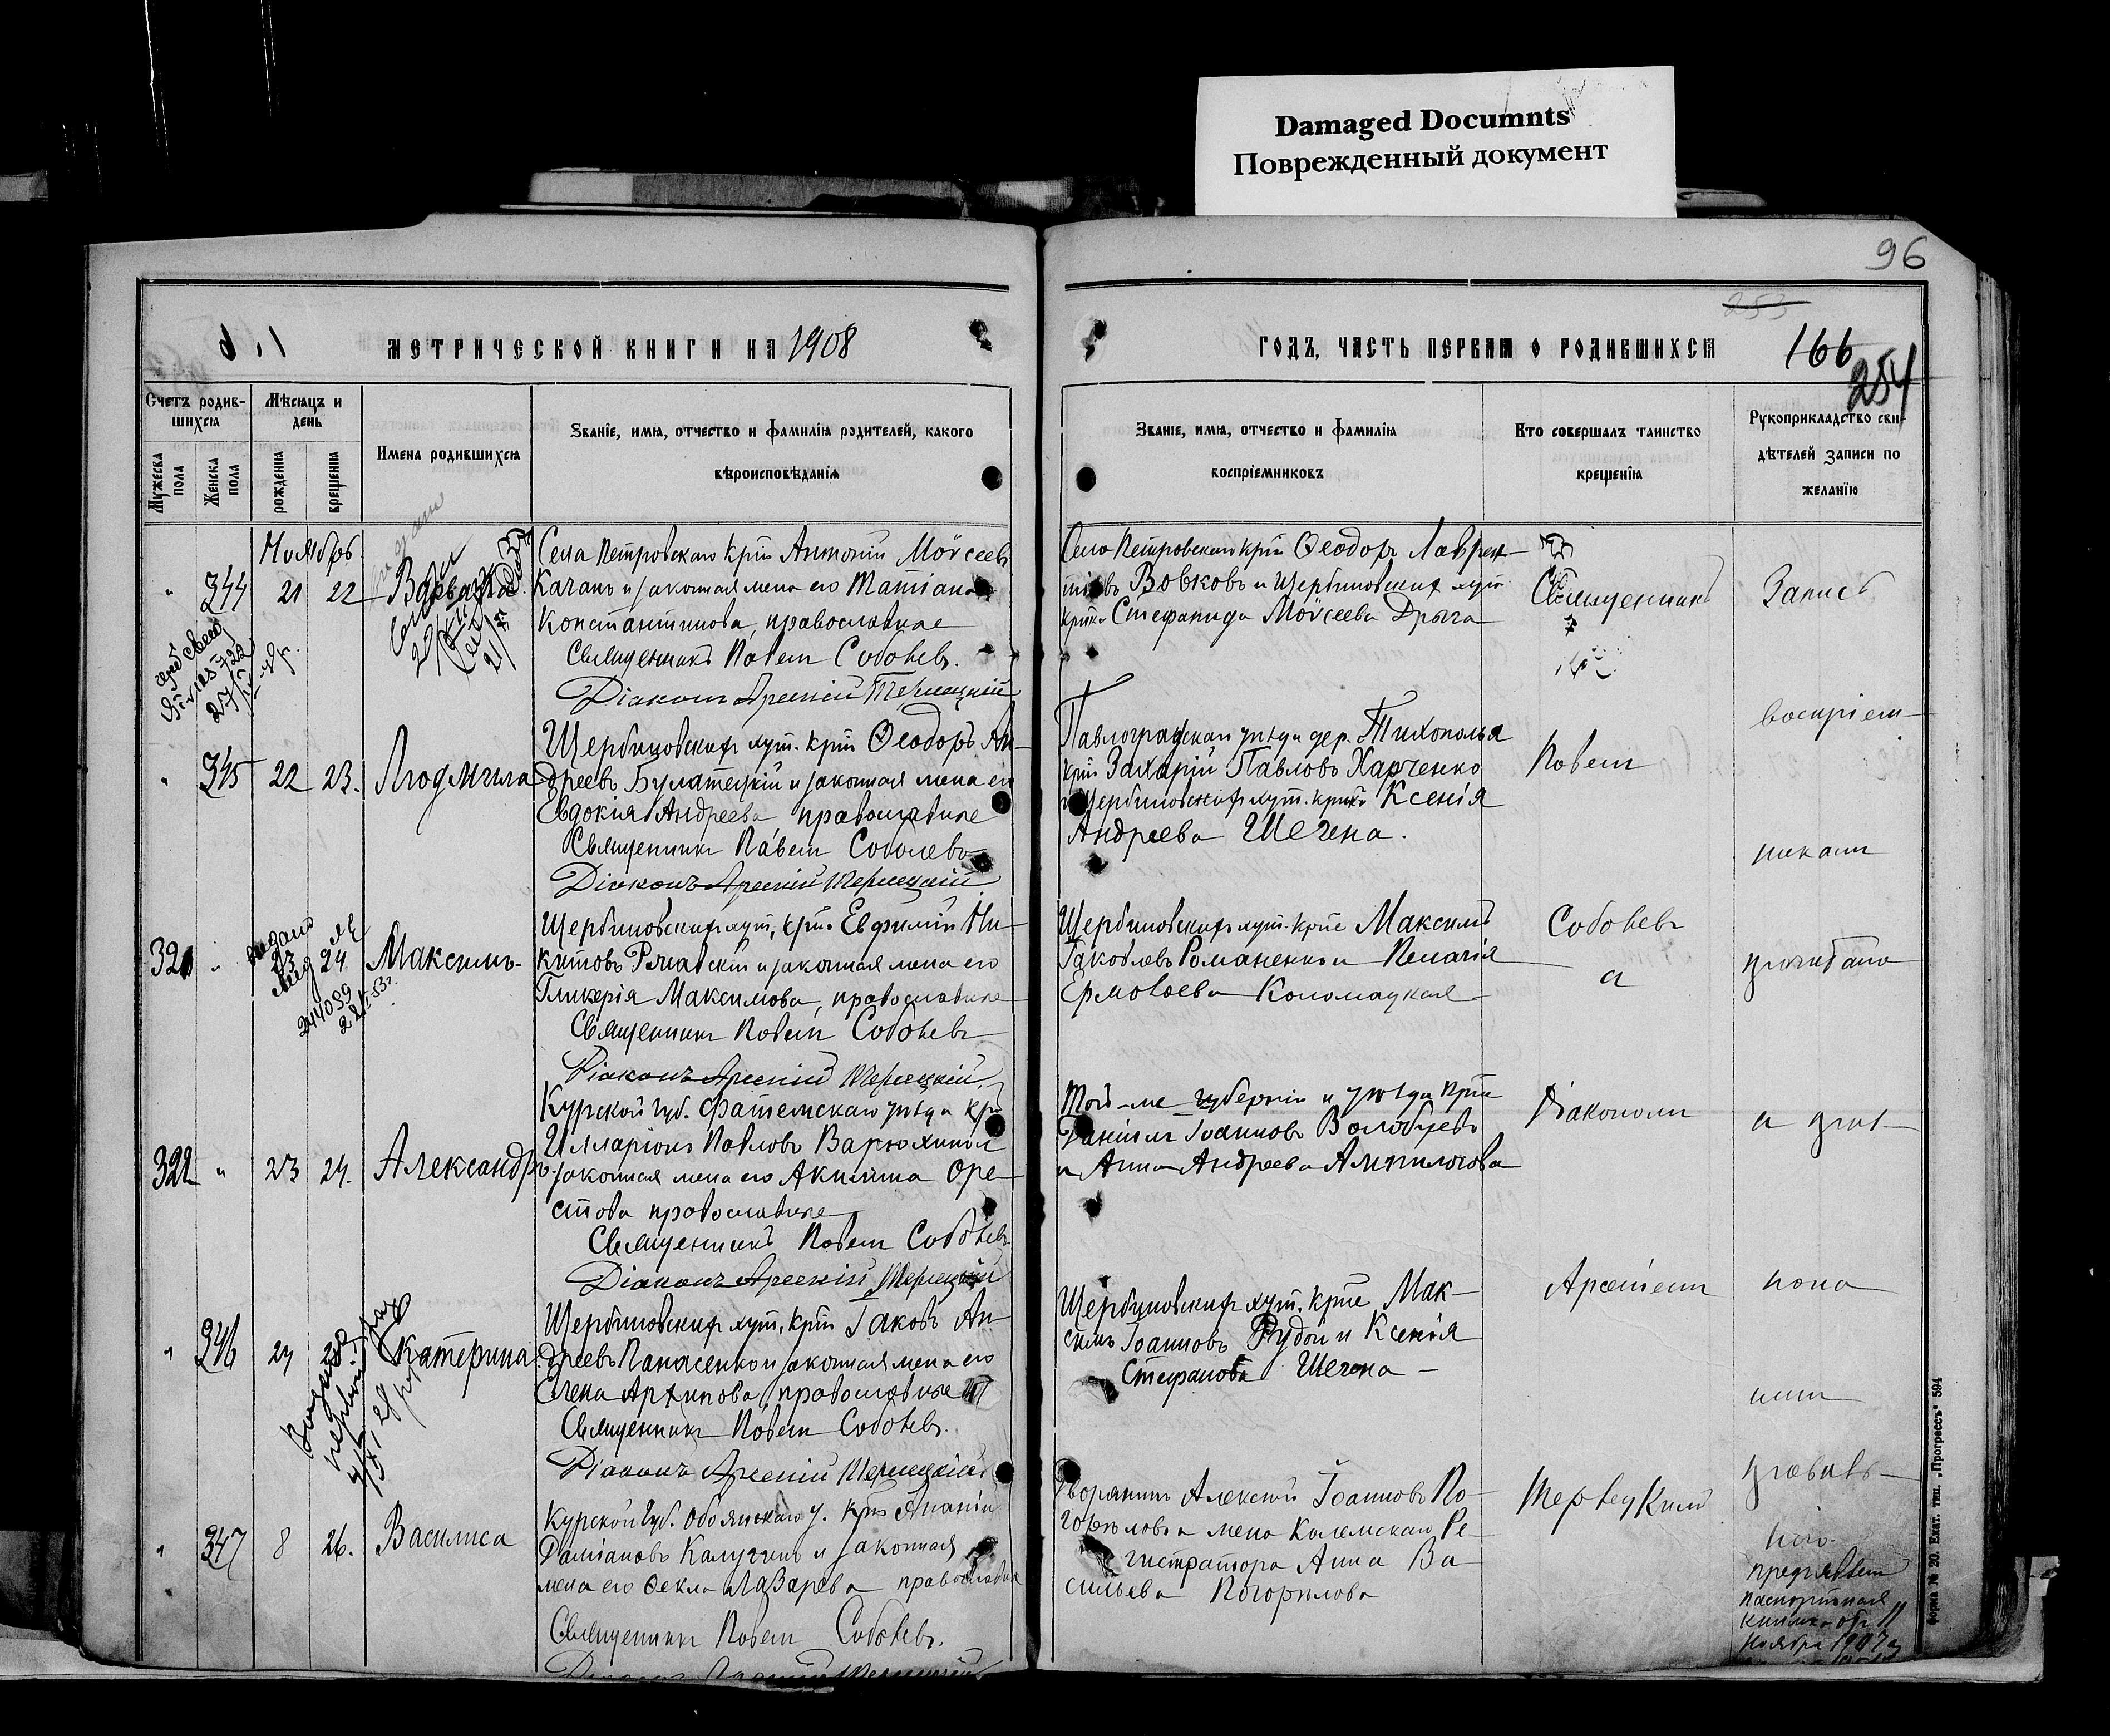 Damaged Documnts
Поврежденный документ
96
253
МЕТРИЧЕСКОЙ КНИГИ НА 1908
ГОДЪ, ЧАСТЬ ПЕРВАЯ О РОДИВШИХСЯ
166
254
Счетъ родив-
шихся
Мужеска пола
Женска пола
Мѣсяцъ и
день
рожденія
крещенія
Имена родившихся
Званіе, имя, отчество и фамилія родителей, какого
вѣроисповѣданія
Званіе, имя, отчество и фамилія
воспріемниковъ
Кто совершалъ таинство
крещенія
Рукоприкладство сви-
дѣтелей записи по
желанію
Ноябрь
344 21 22 Варвара
Села Петровскаго крн Антоній Мойсеевъ
Качанъ и законная жена его Татіана
Константинова, православные
Священникъ Павелъ Соболевъ.
Діаконъ Арсеній Терлецкій
Село Петровскаго крн Ѳеодоръ Лаврен-
тіевъ Вовковъ и Щербиновскихъ хут.
крнка Стефанида Мойсеева Дрыга
345 22 23. Людмила
Щербиновских хут. крн Ѳеодоръ Ан-
дреевъ Булатецкій и законная жена его
Евдокія Андреева православные
Священникъ Павелъ Соболевъ
Діаконъ Арсеній Терлецкій
Павлоградскаго уѣзда дер. Тихополья
крн Захарій Павловъ Харченко
и Щербиновских хут. крнка Ксенія
Андреева Шечена.
321 23 24 Максимъ
Щербиновских хут. крн. Евфимій Ни-
китовъ и законная жена его
Гликерія Максимова, православные
Священникъ Павелъ Соболевъ
Діаконъ Арсеній Терлецкій
Щербиновских хут. крне Максимъ
Іаковлевъ Романенко и Пелагія
Ермолаева Коломацкая
322 23 24. Александръ
Курской губ. Фатежскаго уѣзда крн
Илларіонъ Павловъ Варюхинъ и
законная жена его Акилина Оре-
стова православные
Священникъ Павелъ Соболевъ
Діаконъ Арсеній Терлецкій
Той-же губерніи и уѣзда крне
Даніилъ Іоанновъ Волобуевъ
и Анна Андреева Ампилогова
346 24 Катерина
Щербиновских хут. крн Іаковъ Ан-
дреевъ Панасенко и законная жена его
Елена Архипова, православные
Священникъ Павелъ Соболевъ.
Діаконъ Арсеній Терлецкій
Щербиновских хут. крне Мак-
симъ Іоанновъ Рудой и Ксенія
Стефанова Шечена
347 8 26. Василиса
Курской губ. Обоянскаго у. крн Ананій
Даміановъ Калугинъ и законная
жена его Ѳекла Лазарева православные
Священникъ Павелъ Соболевъ.
Дворянинъ Алексѣй Іоанновъ По-
горѣловъ и жена Коллежскаго Ре-
гистратора Анна Ва
сильева Погорѣлова
Священникъ
Павелъ
Соболевъ
а
Діакономъ
Арсеніем
Терлецкимъ
Запись
воспріем-
никами
прочитана
предъявлен
паспортная
книжка отъ 11
Ноября 1907 г
Форма № 20. Екат. тип. „Прогрессъ“ 594